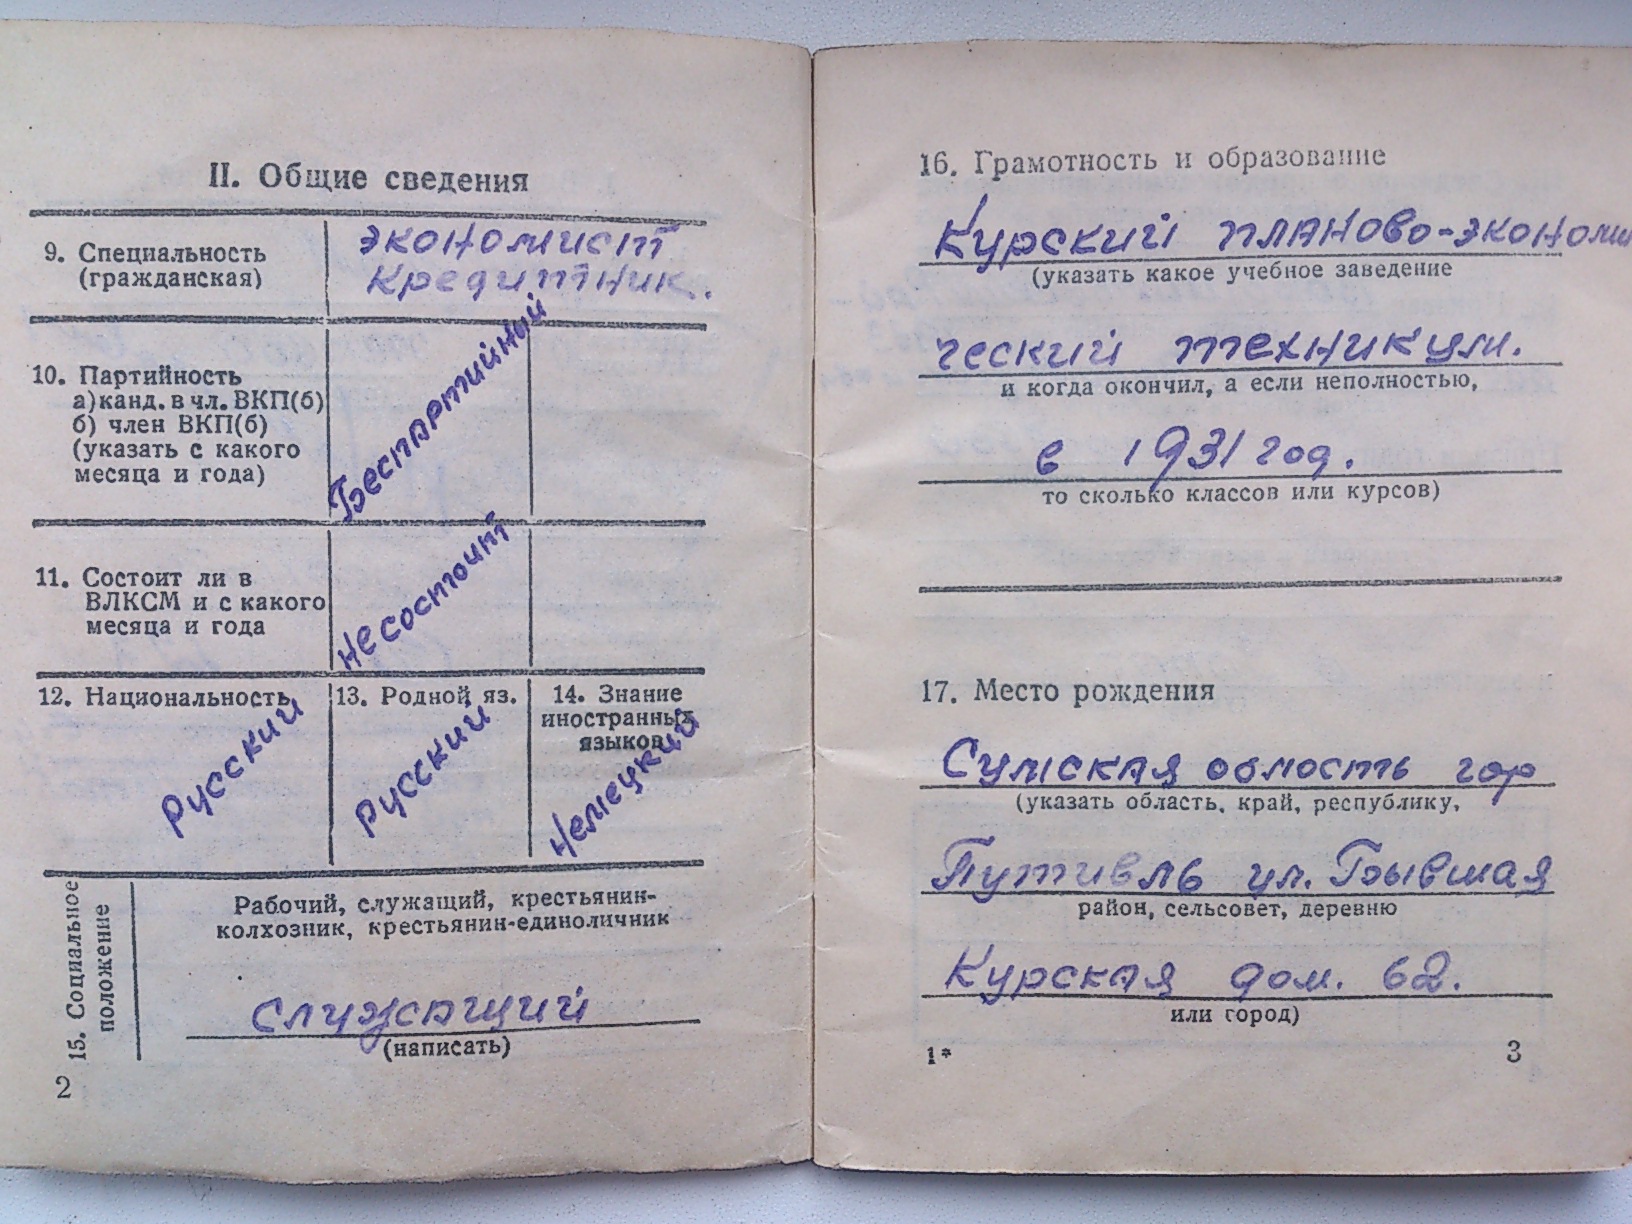 II. Общие сведения
9. Специальность
(гражданская)
экономист
кредитник.
10. Партийность
а) канд. в чл. ВКП(б)
б) член ВКП(б)
(указать с какого
месяца и года)
Беспартийный
11. Состоит ли в
ВЛКСМ и с какого
месяца и года
Не состоит
12. Национальность
Русский
13. Родной яз.
Русский
14. Знание
иностранных
языков
Немецкий
15. Социальное
положение
Рабочий, служащий, крестьянин-
колхозник, крестьянин-единоличник
служащий
(написать)
2
16. Грамотность и образование
Курский планово-экономи
(указать какое учебное заведение
ческий техникум.
и когда окончил, а если неполностью,
в 1931 год.
то сколько классов или курсов)
17. Место рождения
Сумская область гор
(указать область, край, республику,
Путивль ул. Бывшая
район, сельсовет, деревню
Курская дом. 62.
или город)
1*
3